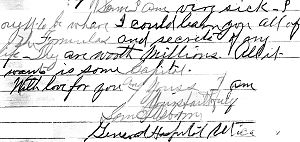 I am very sick - I
ought to be where I could leave you all of
my Formulas and secrets of my
life - They are worth Millions. All it
wants is some Capital.
With love for you and yours I am
Yours Faithfully
General Hospital Utica